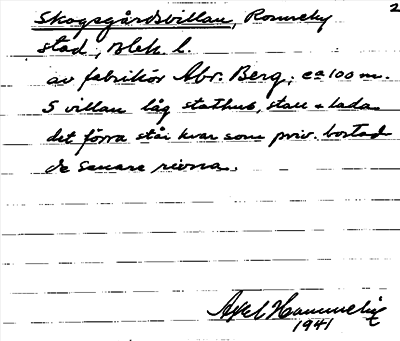 2
Skogsgårdsvillan, Ronneby
stad, Blek. l.
av fabrikör Abr. Berg; ca 100 m.
S villan låg stathus, stall + lada
det förra står kvar som priv. bostad
de senare rivna.
Axel Hammelin
1941